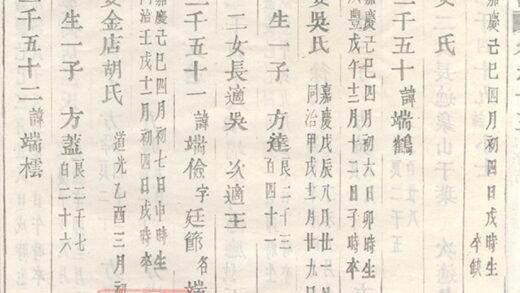 嘉慶己巳四月初四日戌時生
卒缺
二氏
千五十 諱端鶴
嘉慶己巳四月初六日卯時生
豐戊午十二月十二日子時卒
吳氏 嘉慶戊辰八月廿
同治甲戌十二月廿九日
生一子 方達 艮二千三
百四十一
二女長適吳 次適王
千五十一 諱端儉字廷節各端
嘉慶己巳四月初七日申時生
同治壬戌十一月初四日戌時卒
金店胡氏 道光乙酉三月初
生一子 方蓋 艮二千七
百二十六
千五十二 諱端